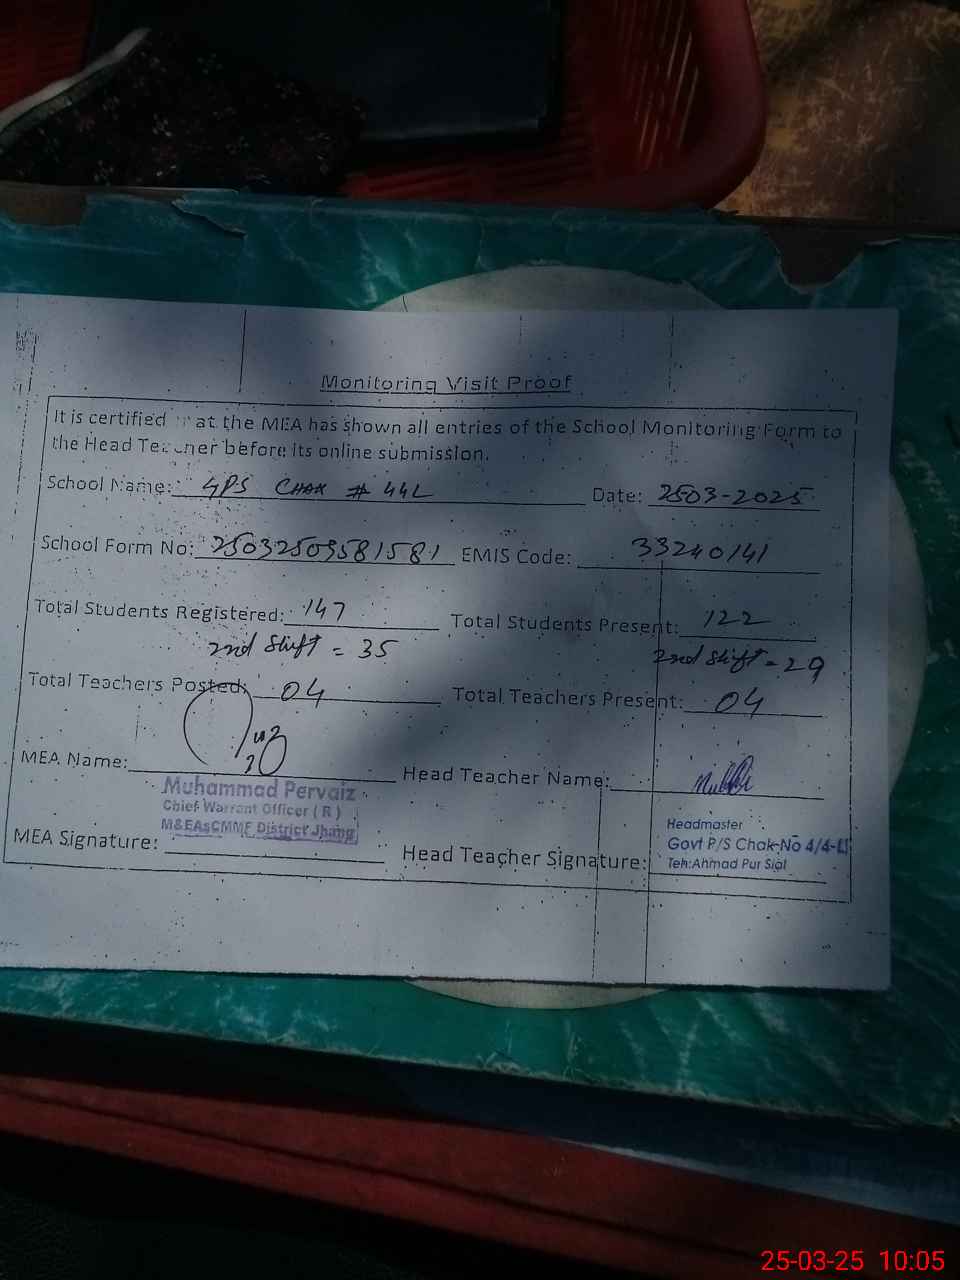 Monitoring Visit Proof
It is certified that the MEA has shown all entries of the School Monitoring Form to
the Head Teacher before its online submission.
School Name: GPS CHAK # 44L Date: 25-03-2025
School Form No: 25032509581581 EMIS Code: 33240141
Total Students Registered: 147 Total Students Present: 122
2nd Shift = 35 2nd Shift = 29
Total Teachers Posted: 04 Total Teachers Present: 04
MEA Name: Head Teacher Name:
Muhammad Pervaiz
Chief Warrant Officer ( R )
M&EAsCMMF District Jhang
MEA Signature: Head Teacher Signature:
Headmaster
Govt P/S Chak-No 4/4-L
Teh:Ahmad Pur Sial
25-03-25 10:05